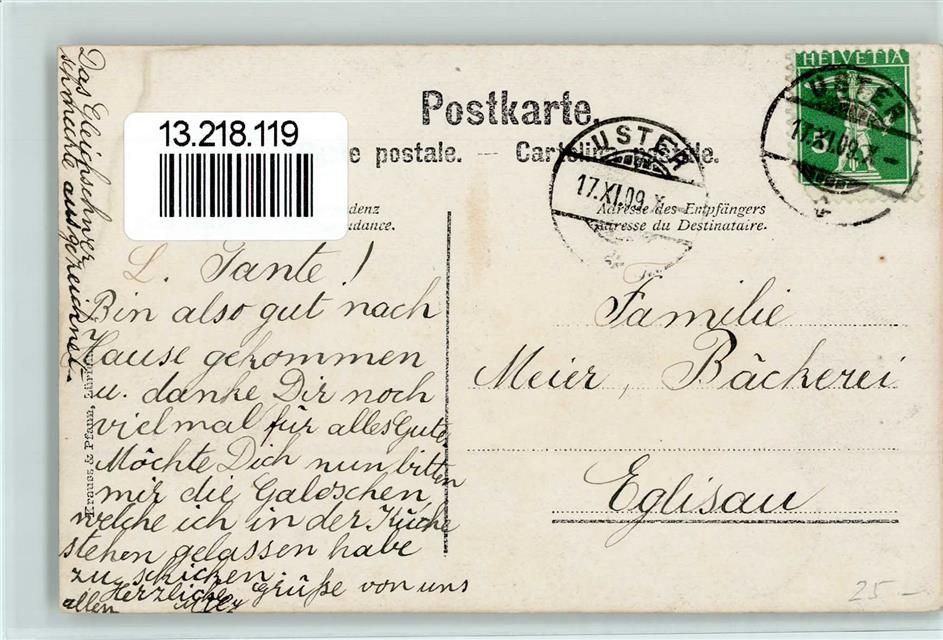 13.218.119
Postkarte.
postale. — Cartolina postale.
HELVETIA
USTER
17.XI.09.X
USTER
17.XI.09.X
Adresse des Empfängers
Adresse du Destinataire.
L. Tante!
Bin also gut nach
Hause gekommen
u. danke Dir noch
vielmal für alles Gute
Möchte Dich nun bitten
mir die Galoschen,
welche ich in der Küche
stehen gelassen habe
zu schicken.
Herzliche Grüße von uns
allen
Das Gleichschwer
schmeckte ausgezeichnet.
Krauss & Pfann, Zürich
Familie
Meier, Bäckerei
Eglisau
25 –